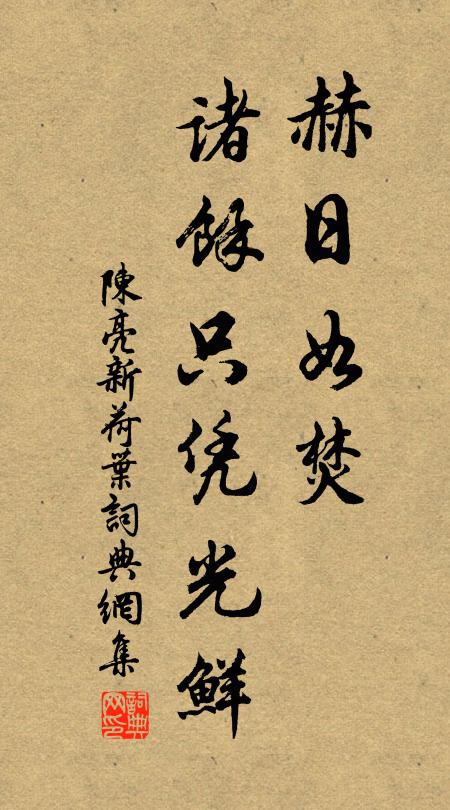 赫日如焚
諸餘只凭光鮮
陳亮新荷葉詞典網集
詞典網印